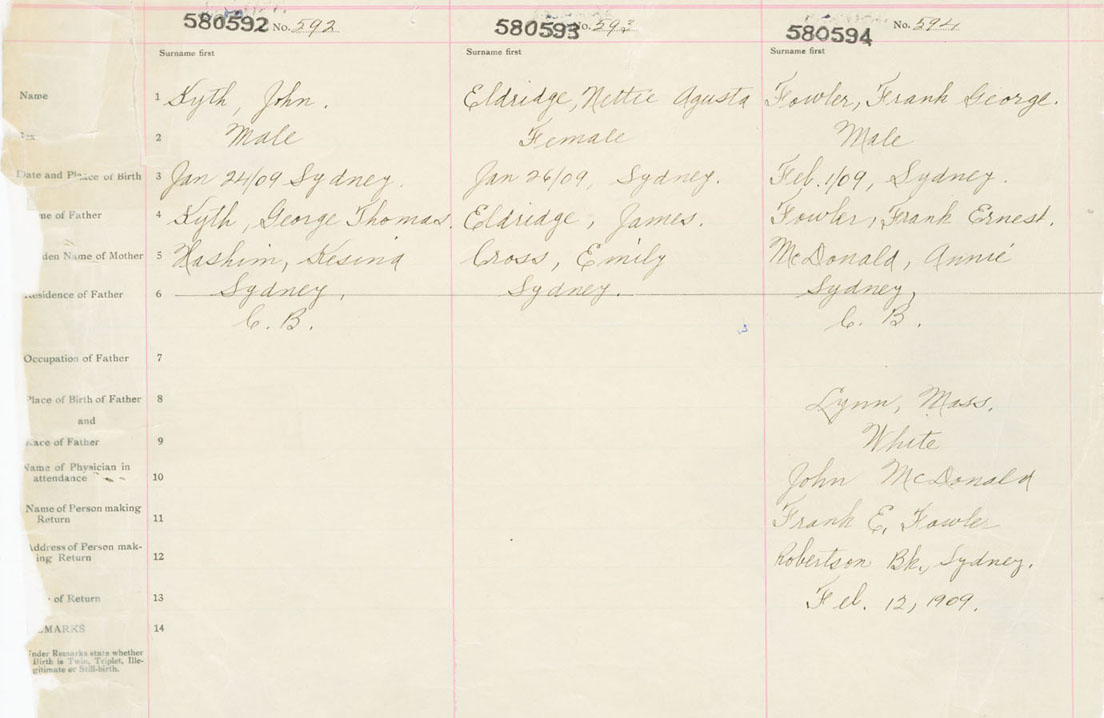 580592 No. 592
580593 No. 593
580594 No. 594
Surname first
Surname first
Surname first
Name 1 Kyth, John. Eldridge, Nettie Agusta Fowler, Frank George.
2 Male Female Male
Date and Place of Birth 3 Jan 24/09 Sydney. Jan 26/09, Sydney. Feb. 1/09, Sydney.
me of Father 4 Kyth, George Thomas. Eldridge, James. Fowler, Frank Ernest.
den Name of Mother 5 Hashim, Cross, Emily McDonald, Annie
esidence of Father 6 Sydney, Sydney. Sydney,
C. B. C. B.
Occupation of Father 7
Place of Birth of Father 8 Lynn, Mass.
and
Race of Father 9 White
Name of Physician in
attendance 10 John McDonald
Name of Person making
Return 11 Frank E. Fowler
Address of Person mak-
ing Return 12 Robertson Bk., Sydney.
of Return 13 Feb. 12, 1909.
EMARKS 14
Under Remarks state whether
Birth is Twin, Triplet, Ille-
gitimate or Still-birth.